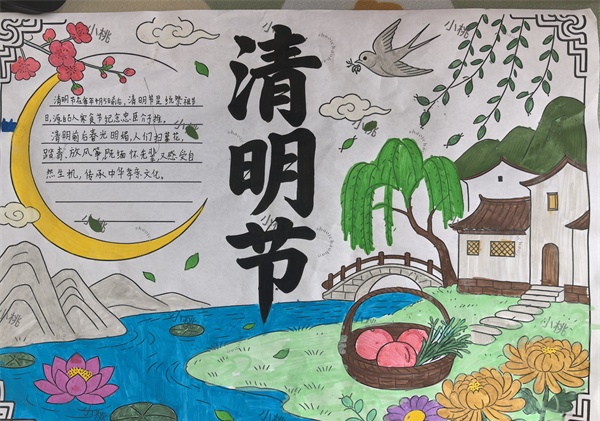 清明节
清明节在每年4月5日前后,清明节是统祭祖节
日,源自古人寒食节纪念忠臣介子推。
清明前后春光明媚,人们扫墓祭
踏青、放风筝,既缅怀先辈,又感受自
然生机,传承中华孝亲文化。
小桃
小桃
小桃
小桃
小桃
小桃
小桃
小桃
小桃